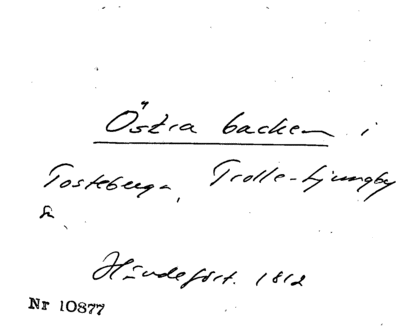 Östra backen i
Tosteberga, Trolle-Ljungby
sn
Händefört. 1812
Nr 10877